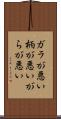 ガラが悪い
柄が悪いが
らが悪い